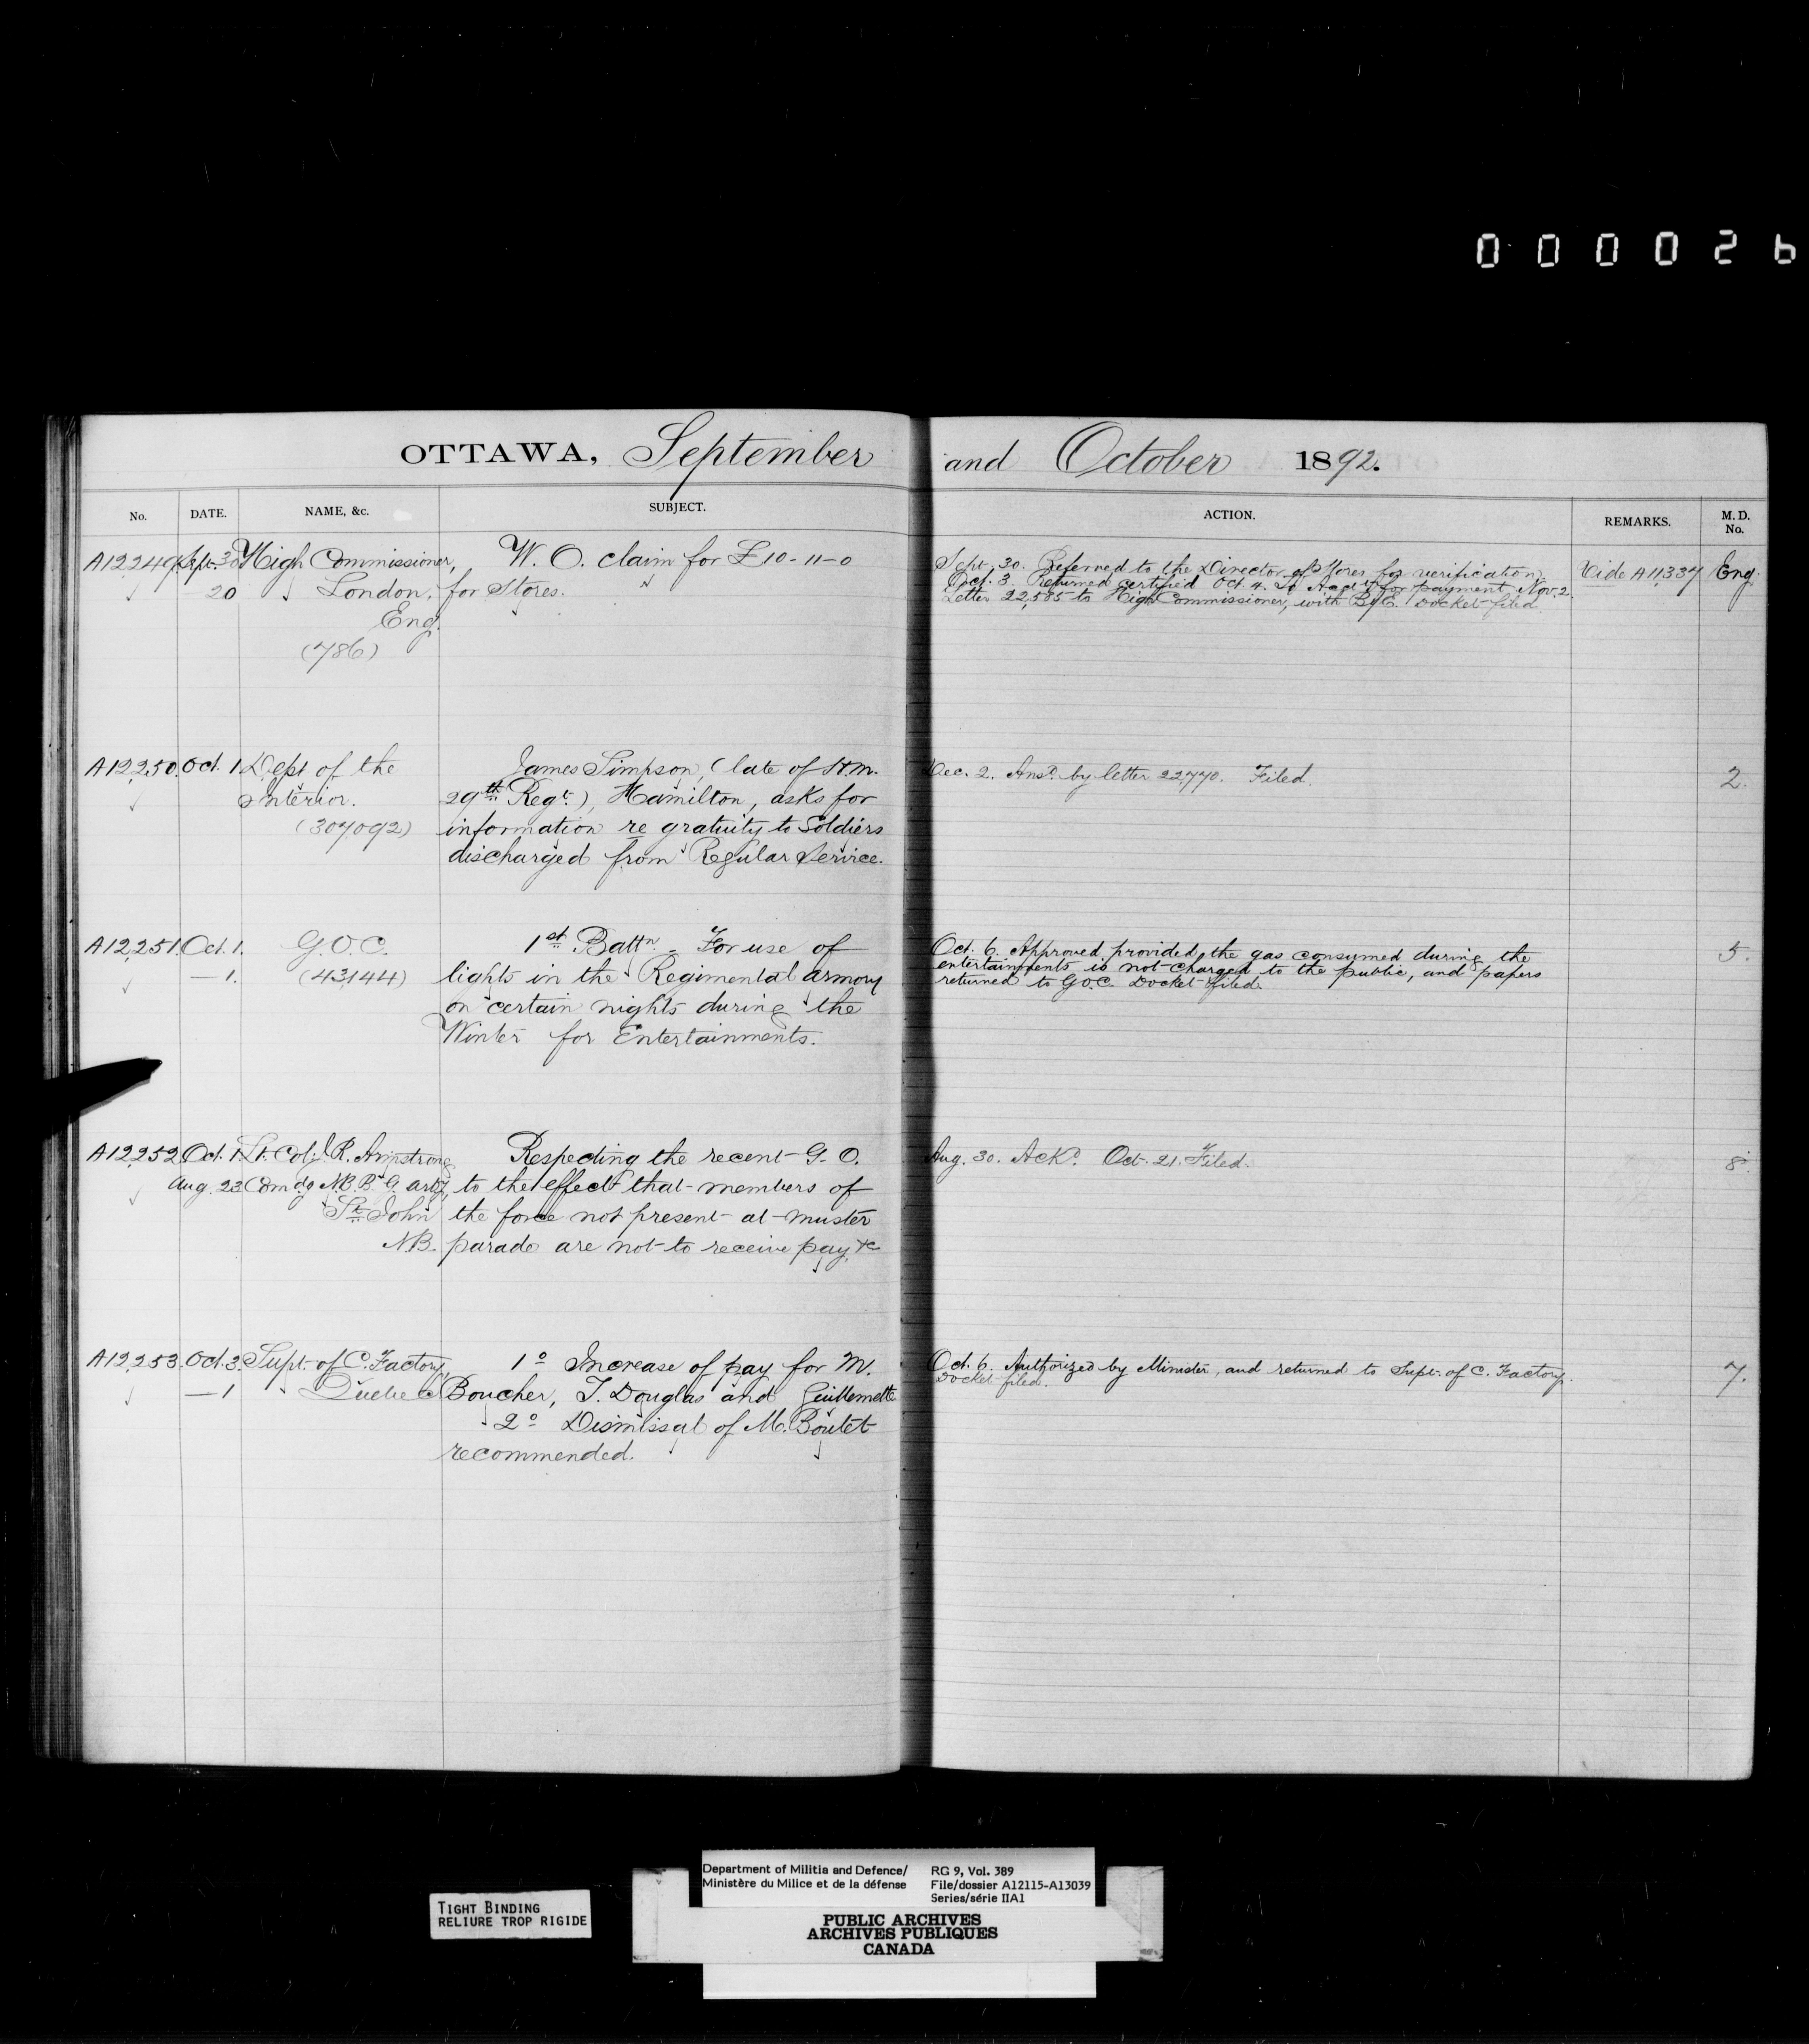 000026
OTTAWA, September and October 1892.
No. DATE. NAME, &c. SUBJECT. ACTION. REMARKS. M. D. No.
A12,249. Sept. 30 High Commissioner, W. O. claim for £10-11-0
20 London, for Stores.
Eng.
(786)
Sept. 30. Referred to the Director of Stores for verification.
Oct. 3. Returned certified Oct. 4. To Acct for payment Nov. 2.
Letter 22,585 to High Commissioner, with B/E. Docket filed.
Vide A11337 Eng.
A12,250. Oct. 1. Dept of the James Simpson, (late of H.M.
Interior. 29th Regt.), Hamilton, asks for
(307092) information re gratuity to Soldiers
discharged from Regular Service.
Dec. 2. Ansd. by letter 22,770. Filed. 2.
A12,251. Oct. 1. G.O.C. 1st Battn. - For use of
— 1. (43144) lights in the Regimental armory
on certain nights during the
Winter for Entertainments.
Oct. 6. Approved provided the gas consumed during the
entertainments is not charged to the public, and papers
returned to G.O.C. Docket filed.
5.
A12,252. Oct. 1. Lt. Col. J. R. Armstrong Respecting the recent G. O.
Aug. 23 Comdg N.B.B. G. arty, to the effect that members of
St. John the force not present at muster
N.B. parade are not to receive pay, &c
Aug. 30. Ackd. Oct. 21. Filed. 8.
A12,253. Oct. 3. Supt. of C. Factory, 1o Increase of pay for M.
— 1 Quebec Boucher, T. Douglas and Guillemette
2o Dismissal of M. Boutet
recommended.
Oct. 6. Authorized by Minister, and returned to Supt. of C. Factory.
Docket filed.
7.
TIGHT BINDING
RELIURE TROP RIGIDE
Department of Militia and Defence/
Ministère du Milice et de la défense
RG 9, Vol. 389
File/dossier A12115-A13039
Series/série IIA1
PUBLIC ARCHIVES
ARCHIVES PUBLIQUES
CANADA